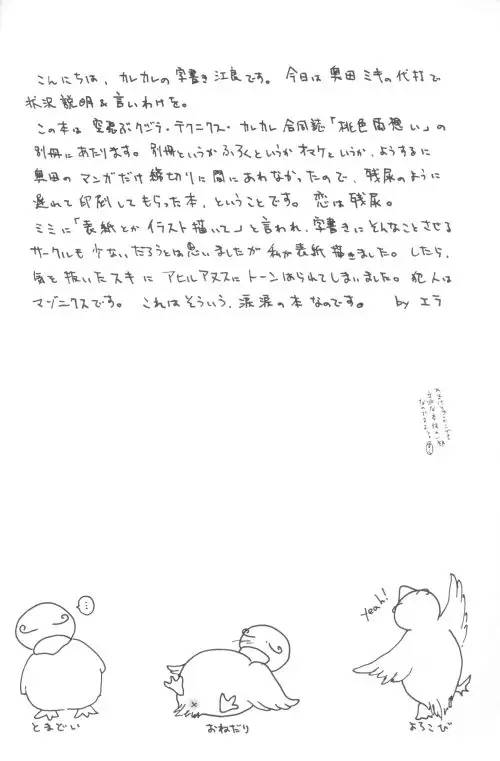 こんにちは、カレカレの字書き江良です。今日は奥田ミキの代打で
状況説明&言いわけを。
この本は空飛ぶクジラ・テクニクス・カレカレ合同誌「桃色面想い」の
別冊にあたります。別冊というかふろくというかオマケというか、ようするに
奥田のマンガだけ締切りに間にあわなかったので、残尿のように
遅れて印刷してもらった本、ということです。恋は残尿。
ミミに「表紙とかイラスト描いて」と言われ、字書きにそんなことさせる
サークルも少ないだろうとは思いましたが私が表紙描きました。したら、
気を抜いたスキにアヒルアヌスにトーンはられてしまいました。犯人は
マゾニクスです。これはそういう、涙涙の本なのです。 by エラ
…
Yeah!
とまどい
おねだり
よろこび